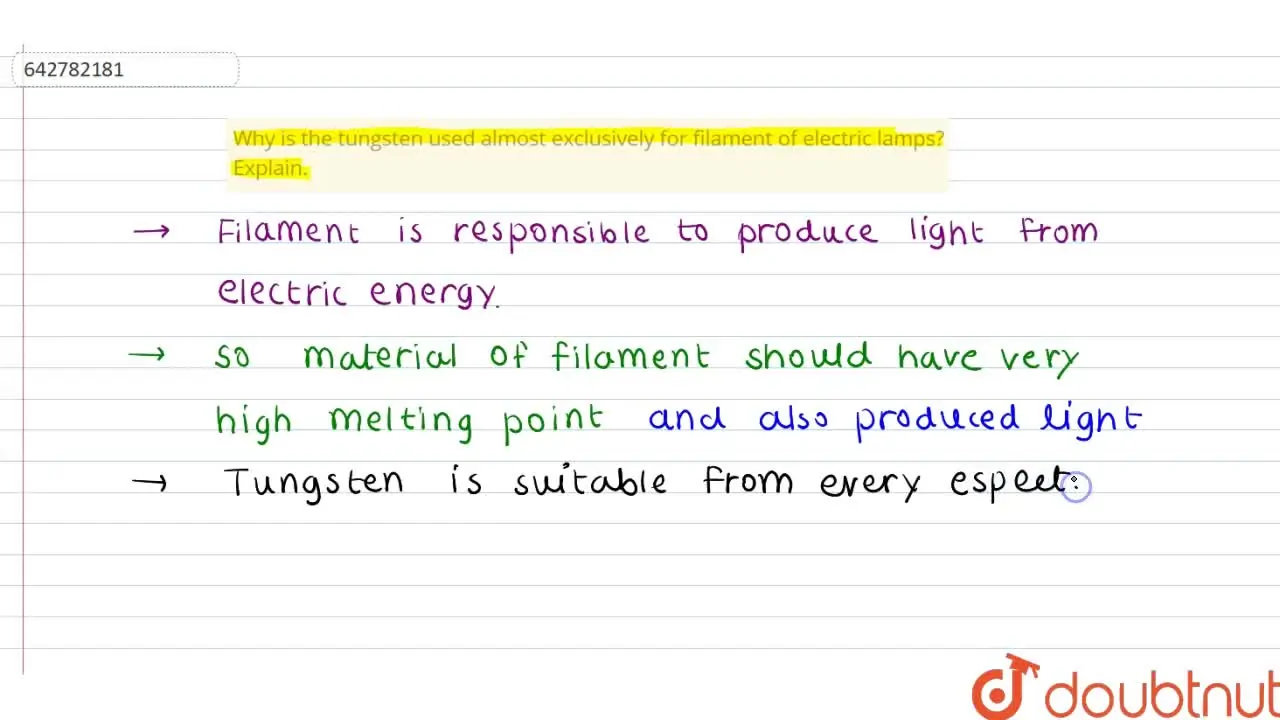 642782181
Why is the tungsten used almost exclusively for filament of electric lamps?
Explain.
→ Filament is responsible to produce light from
electric energy.
→ so material of filament should have very
high melting point and also produced light
→ Tungsten is suitable from every espect.
doubtnut